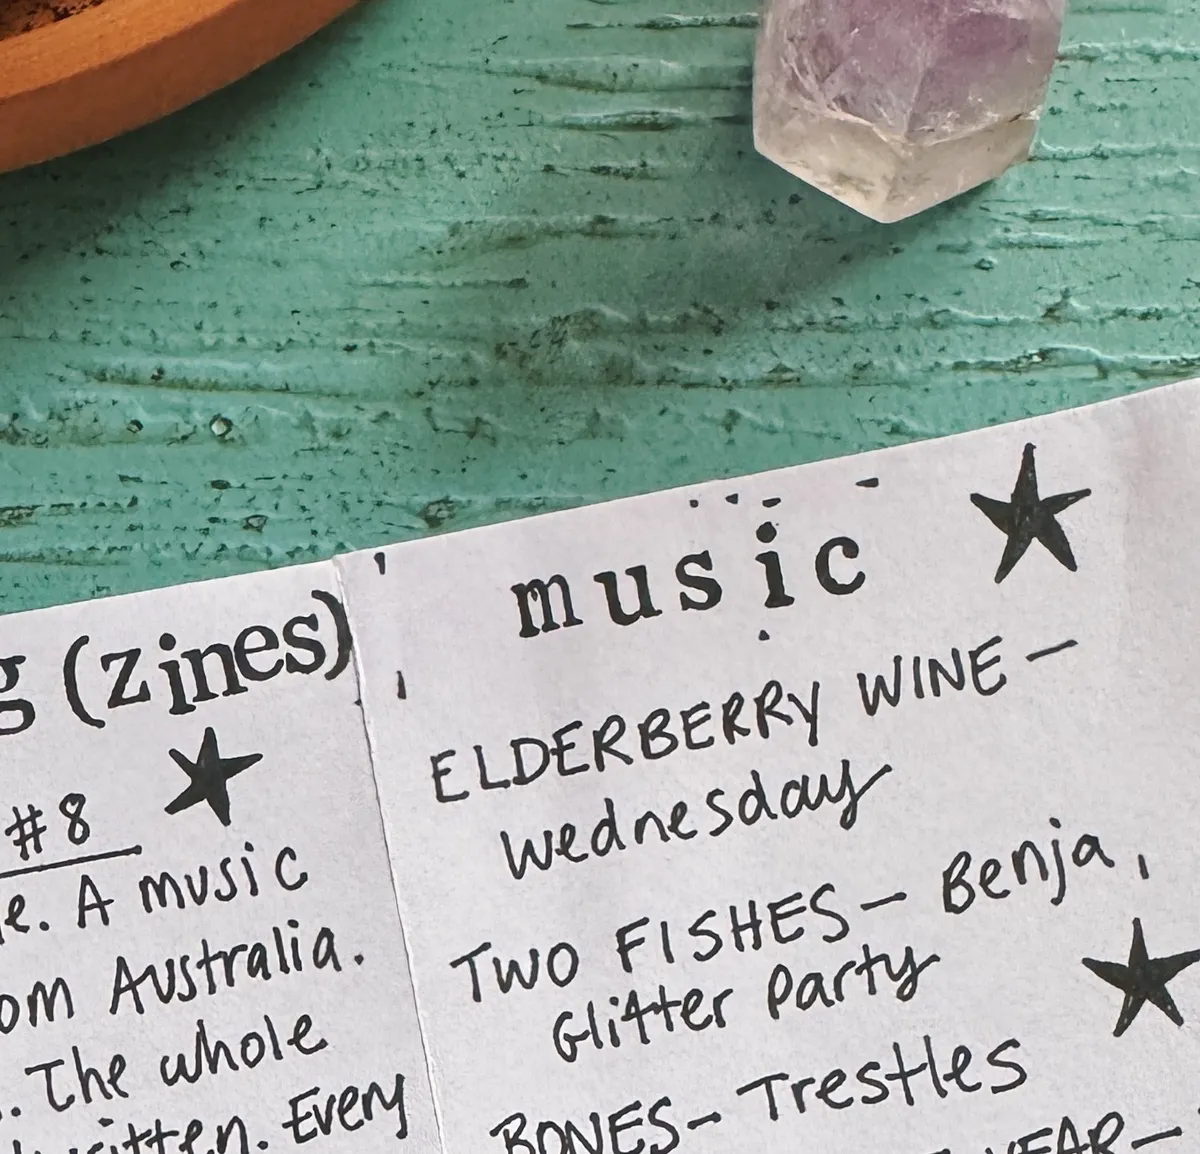 g (zines)
#8
e. A music
om Australia.
. The whole
written. Every
music
ELDERBERRY WINE —
Wednesday
TWO FISHES — Benja,
Glitter Party
BONES — Trestles
YEAR —